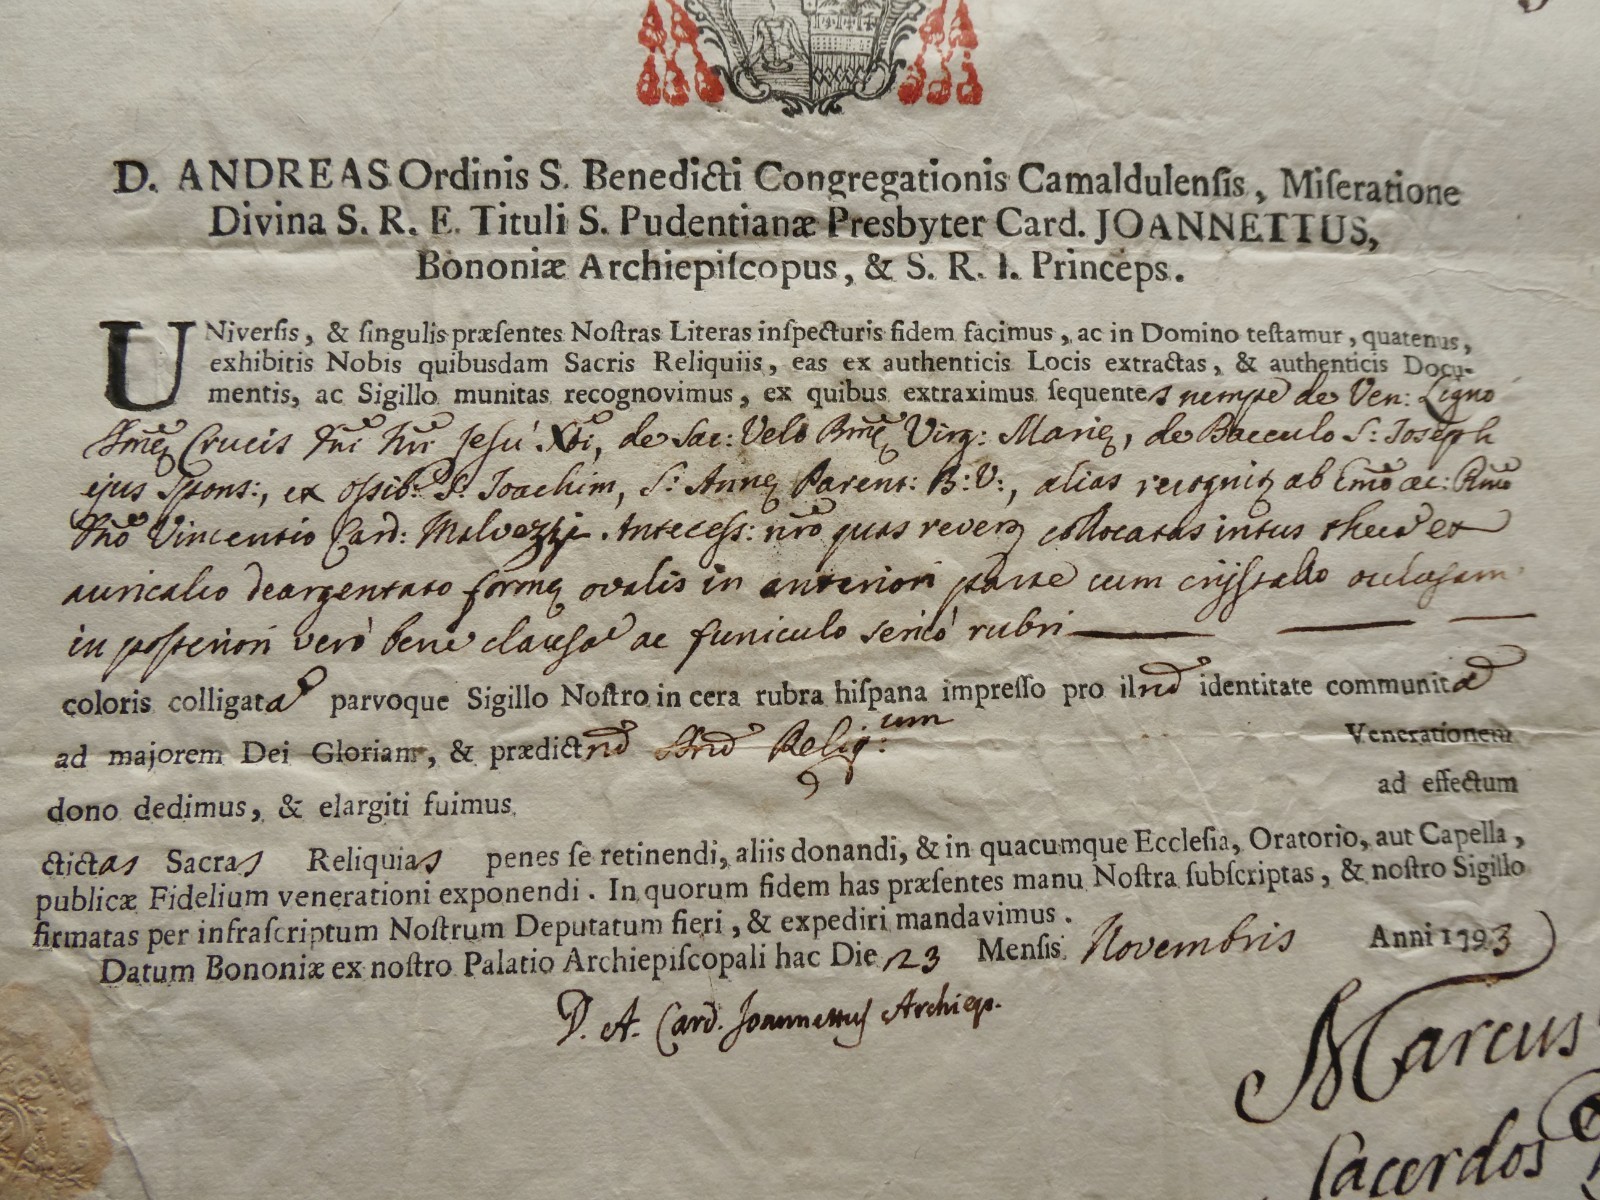 D. ANDREAS Ordinis S. Benedicti Congregationis Camaldulenſis, Miſeratione
Divina S. R. E. Tituli S. Pudentianæ Presbyter Card. JOANNETTUS,
Bononiæ Archiepiſcopus, & S. R. I. Princeps.
UNiverſis, & ſingulis præſentes Noſtras Literas inſpecturis fidem facimus, ac in Domino teſtamur, quatenus,
exhibitis Nobis quibusdam Sacris Reliquiis, eas ex authenticis Locis extractas, & authenticis Docu-
mentis, ac Sigillo munitas recognovimus, ex quibus extraximus ſequentes nempe de Ven: Ligno
Smę Crucis Dni Nri Jesu Xti, de Sac: Velo Bmę Virg: Marię, de Bacculo S: Joseph
ejus Spons:, ex ossib: S: Joachim, S: Annę Parent: B: V:, alias recognit ab Emo ac: Rmo
Dno Vincentio Card: Malvezzi. Antecess: nro quas reverę collocatas intus theca ex
auricalco deargentato formę ovalis in anteriori parte cum crystallo oclusam
in posteriori verò bene clausa ac funiculo sericò rubri
coloris colligata parvoque Sigillo Noſtro in cera rubra hiſpana impreſſo pro illnd identitate communita
ad majorem Dei Gloriam, & prædictnd Srnd Reliq:um Venerationem
dono dedimus, & elargiti fuimus ad effectum
dictas Sacras Reliquias penes ſe retinendi, aliis donandi, & in quacumque Eccleſia, Oratorio, aut Capella,
publicæ Fidelium venerationi exponendi. In quorum fidem has præſentes manu Noſtra ſubſcriptas, & noſtro Sigillo
firmatas per infraſcriptum Noſtrum Deputatum fieri, & expediri mandavimus.
Datum Bononiæ ex noſtro Palatio Archiepiſcopali hac Die 23 Menſis Novembris Anni 1793
D. A. Card. Joannettus Archiep.
Marcus
Sacerdos